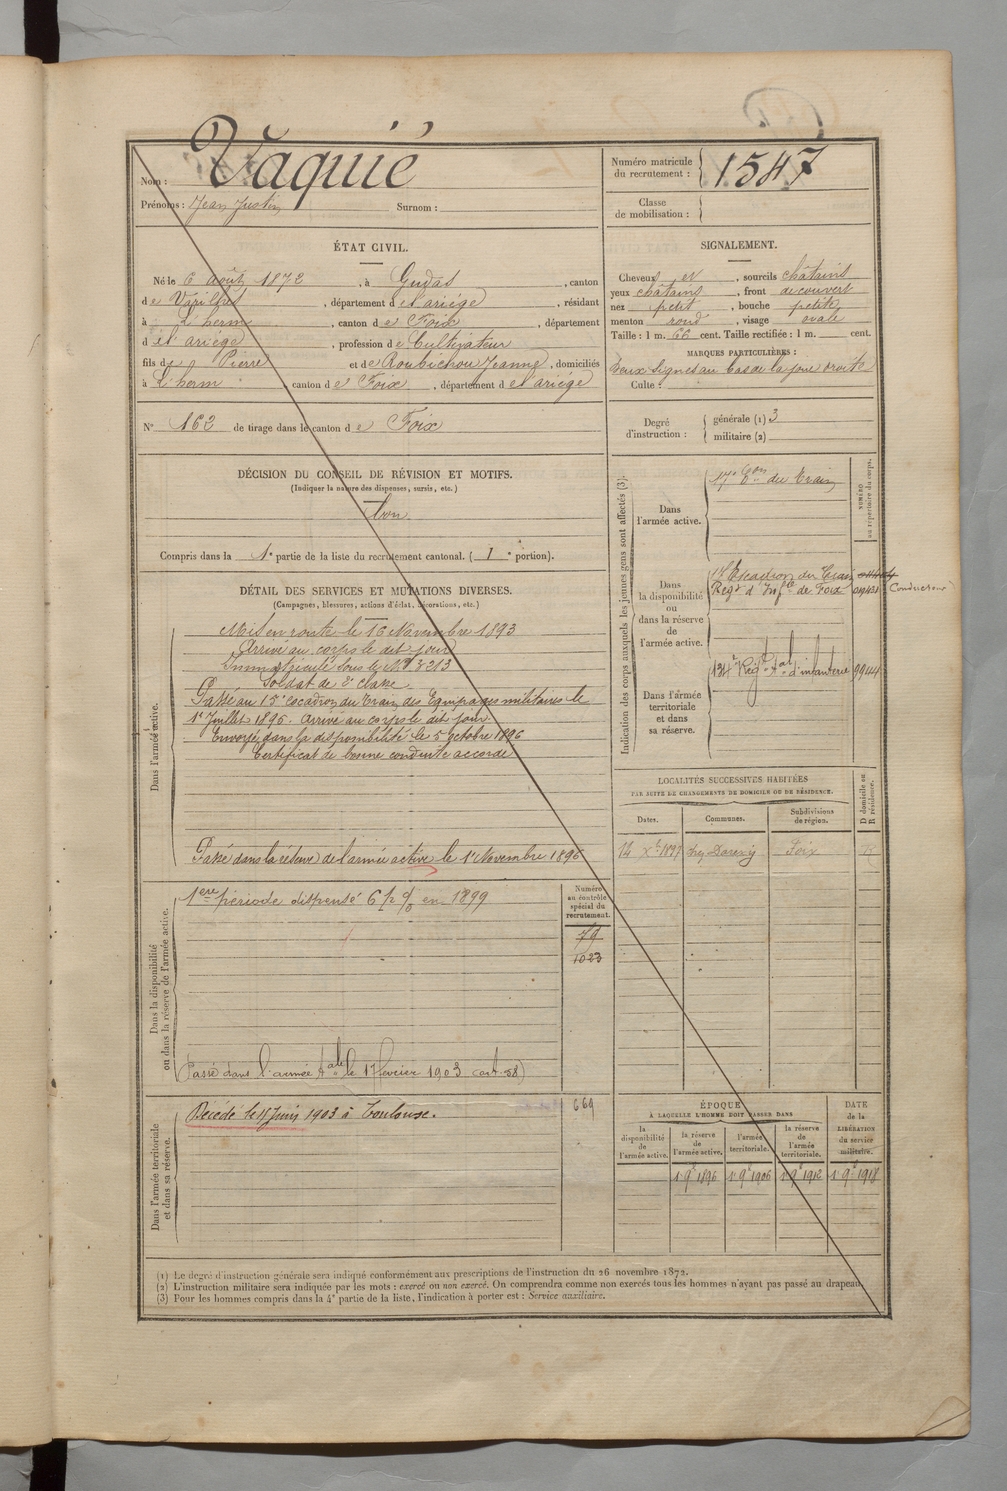 Vaquié
Nom :
Prénoms : Jean Justin Surnom :
Numéro matricule
du recrutement : 1547
Classe
de mobilisation :
ÉTAT CIVIL.
Né le 6 août 1872, à Gudas, canton
de Varilhes, département de l'ariége, résidant
à L'herm, canton de Foix, département
de l'ariége, profession de Cultivateur
fils de Pierre et de Roubichou Jeanne, domiciliés
à L'herm, canton de Foix, département de l'ariége
N° 162 de tirage dans le canton de Foix
SIGNALEMENT.
Cheveux et, sourcils châtains
yeux châtains, front découvert
nez petit, bouche petite
menton rond, visage ovale
Taille : 1 m. 62 cent. Taille rectifiée : 1 m. cent.
MARQUES PARTICULIÈRES :
deux signes au bas de la joue droite
Culte :
Degré
d'instruction :
générale (1) 3
militaire (2)
DÉCISION DU CONSEIL DE RÉVISION ET MOTIFS.
(Indiquer la nature des dispenses, sursis, etc.)
bon
Compris dans la 1e partie de la liste du recrutement cantonal. ( 1e portion).
DÉTAIL DES SERVICES ET MUTATIONS DIVERSES.
(Campagnes, blessures, actions d'éclat, décorations, etc.)
Dans l'armée active.
Mis en route le 16 Novembre 1893
Arrivé au corps le dit jour
Immatriculé sous le N° 3213
Soldat de 2e classe
Passé au 15e escadron du train des Equipages militaires le
1er Juillet 1896. arrivé au corps le dit jour
Envoyé dans la disponibilité le 5 octobre 1896
Certificat de bonne conduite accordé
Passé dans la réserve de l'armée active le 1er Novembre 1896
Dans la disponibilité
ou dans la réserve de l'armée active.
1ère période dispensé 6 % en 1899
Passé dans l'armée tale le 1 février 1903 (art. 58)
Numéro
au contrôle
spécial du
recrutement.
79
1023
669
Dans l'armée territoriale
et dans sa réserve.
Décédé le 11 Juin 1903 à Toulouse.
Indication des corps auxquels les jeunes gens sont affectés (3).
NUMÉRO
au répertoire du corps.
Dans
l'armée active.
17e Eon du Train
Dans
la disponibilité
ou
dans la réserve
de
l'armée active.
Escadron du Train
Regt d'Infie de Foix
Conducteur
Dans l'armée
territoriale
et dans
sa réserve.
134e Regt tal d'infanterie 9944
LOCALITÉS SUCCESSIVES HABITÉES
PAR SUITE DE CHANGEMENTS DE DOMICILE OU DE RÉSIDENCE.
D domicile ou
R résidence.
Dates.
Communes.
Subdivisions
de région.
14 Xbre 1897 Foix R
ÉPOQUE
À LAQUELLE L'HOMME DOIT PASSER DANS
la
disponibilité
de
l'armée active.
la réserve
de
l'armée active.
l'armée
territoriale.
la réserve
de
l'armée
territoriale.
DATE
de la
LIBÉRATION
du service
militaire.
1er 9bre 1896 1er 9bre 1906 1er 9bre 1912 1er 9bre 1918
(1) Le degré d'instruction générale sera indiqué conformément aux prescriptions de l'instruction du 26 novembre 1872.
(2) L'instruction militaire sera indiquée par les mots : exercé ou non exercé. On comprendra comme non exercés tous les hommes n'ayant pas passé au drapeau.
(3) Pour les hommes compris dans la 4e partie de la liste, l'indication à porter est : Service auxiliaire.